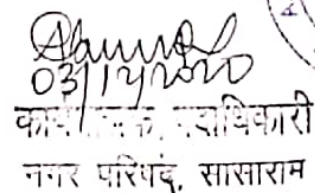 03/12/2020
कार्यपालक पदाधिकारी
नगर परिषद्, सासाराम